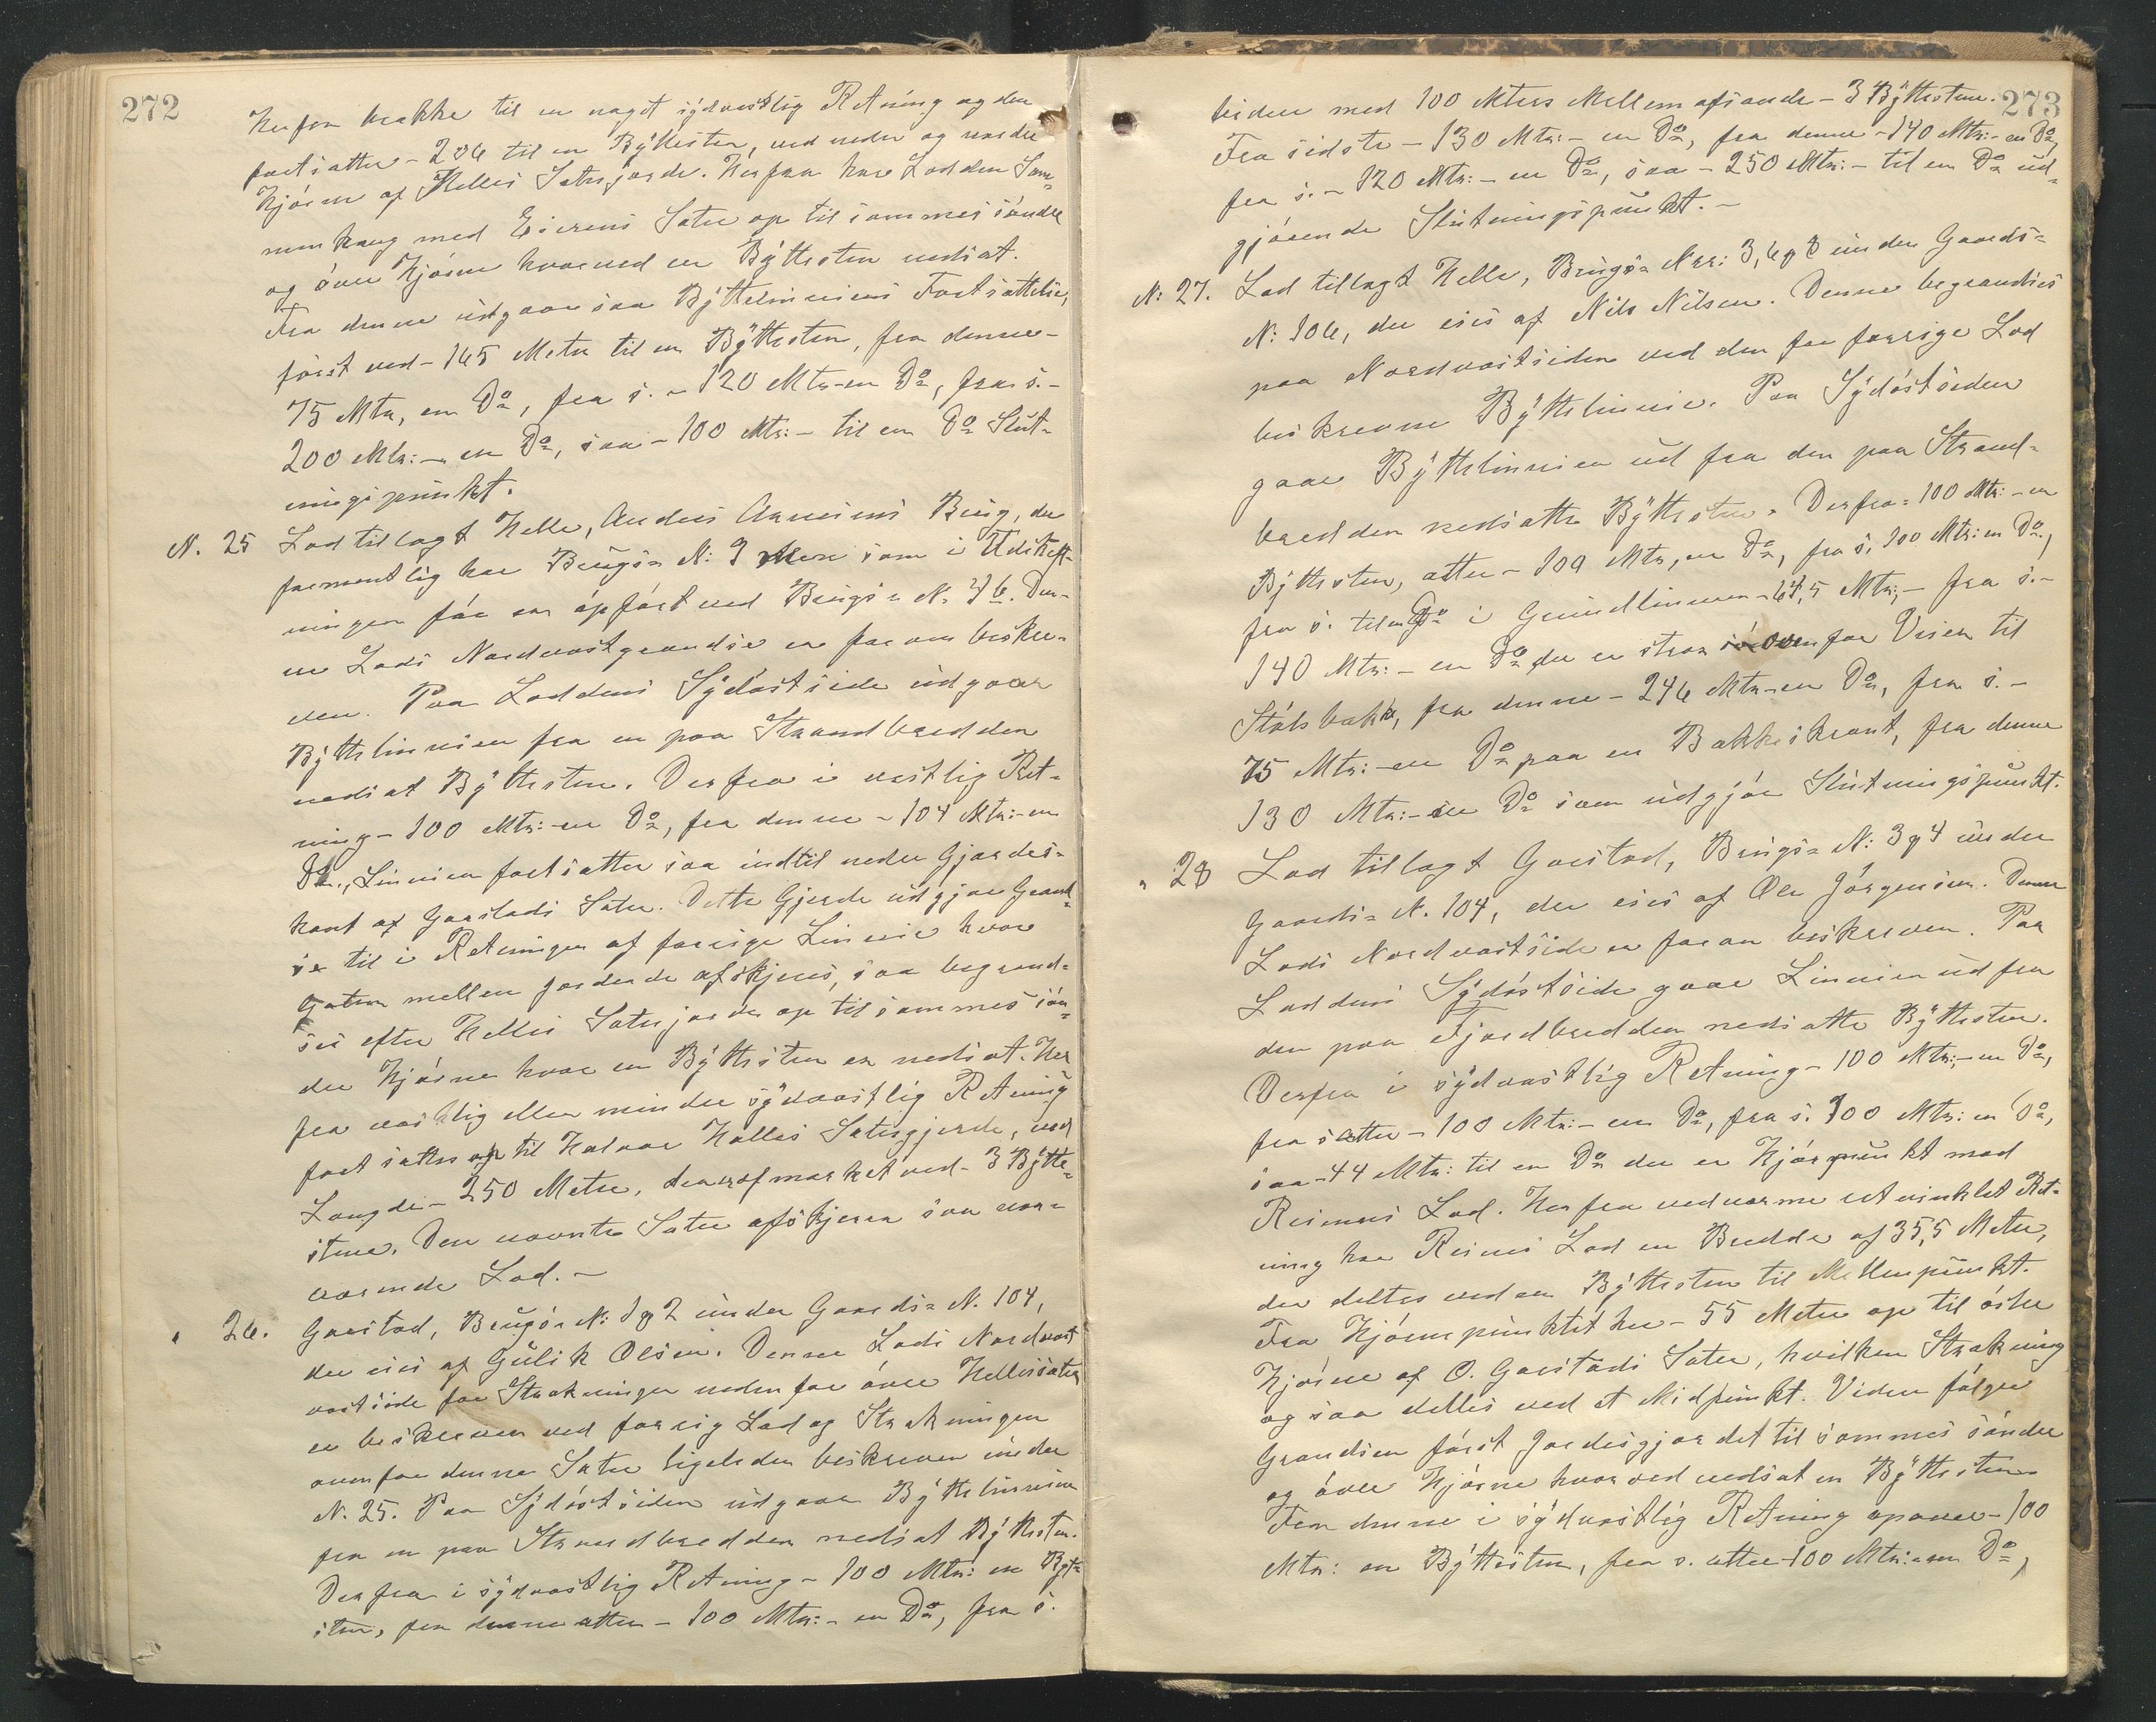 272
Herfra brække til en noget sydvestlig Retning og den
fortsætter - 206 til en Bÿttesten, ved nedre og nordre
Hjórne af Helles Sæterjorde. Herfra har Lodden Sam-
menhæng med Eierens Sæter op til sammes søndre
og óvre Hjórne hvorved en Bÿttesten nedsat.
Fra denne udgaar saa Býttelinniens Fortsættelse,
fórst ved - 165 Meter til en Býttesten, fra denne -
75 Mtr, en Do, fra s. - 120 Mtr - en Do, fra s. -
200 Mtr: - en Do, saa - 100 Mtr: - til en Do Slut-
ningspunkt.
N. 25 Lod tillagt Helle, Anders Arnesens Brug, der
formentlig har Brugs- N: 9 men som i Udskift-
ningen fór var ópfórt ved Brugs- N. 76. Den-
ne Lods Nordvestgrændse er foran beskre-
ven. Paa Loddens Sÿdóstside udgaar
Býttelinnien fra en paa Strandbredden
nedsat Býttesten. Derfra i vestlig Ret-
ning - 100 Mtr: - en Do, fra denne - 104 Mtr: - en
Do., Linnien fortsætter saa indtil nedre Gjærdes-
kant af Gaastads Sæter. Dette Gjerde udgjør Grænd-
se til i Retningen af forrige Linnie hvor
Gaten mellem jorderne afskjeres, saa begrænd-
ses efter Helles Sæterjorder op til sammes søn-
dre Hjórne hvor en Býttesten er nedsat. Her
fra vestlig eller mindre sýdvestlig Retning
fortsættes op til Halvor Helles Sætergjerde,
Længde - 250 Metre, der afmærket ved - 3 Bÿtte-
stene. Den nævnte Sæter afskjerer saa nær-
værende Lod. -
" 26. Gaastad, Brugs- N: 1 og 2 under Gaards- N. 104,
der eies af Gulik Olsen. Denne Lods Nordvest
vestside for Strækningen nedenfor óvre Hellesæter
er beskreven ved forrig Lod og Strækningen
ovenfor denne Sæter ligeleden beskreven under
N. 25. Paa Sýdóstsiden udgaar Býttelinnien
fra en paa Strandbredden nedsat Býttesten.
Derfra i sýdvestlig Retning - 100 Mtr: en Být-
sten, fra denne atter - 100 Mtr: - en Do, fra s.
273
viden med 100 Mters Mellemafstande - 3 Býttestene.
Fra sidste - 130 Mtr: - en Do, fra denne - 140 Mtr: - en Do,
fra s. - 120 Mtr: - en Do, saa - 250 Mtr: - til en Do ud-
gjórende Slutningspunkt. -
N: 27. Lod tillagt Helle, Brugs- Nrr: 3, 6 og 8 under Gaards-
N: 106, der eies af Nils Nilsen. Denne begrændses
paa Nordvestsiden ved den for forrige Lod
beskrevne Býttelinnie. Paa Sýdóstsiden
gaar Býttelinnien ud fra den paa Strand-
bredden nedsatte Býttesten. Derfra - 100 Mtr: - en
Býttesten, atter - 100 Mtr, en Do, fra s. 100 Mtr: en Do.,
fra s. til en Do i Grundlinnien - 64,5 Mtr; - fra s. -
140 Mtr: - en Do der er strax ovenfor Veien til
Stólsbæk, fra denne - 246 Mtr - en Do, fra s. -
75 Mtr: - en Do paa en Bakkeskrænt, fra denne
130 Mtr: - en Do som udgjór Slutningspunkt.
" 28 Lod tillagt Gaastad, Brugs- N: 3 og 4 under
Gaards- N. 104, der eies af Ole Jórgensen. Denne
Lods Nordvestside er foran beskreven. Paa
Loddens Sýdóstside gaar Linnien ud fra
den paa Fjordbredden nedsatte Býttesten.
Derfra i sýdvestlig Retning - 100 Mtr: - en Do,
fra s atter - 100 Mtr: - en Do, fra s. 100 Mtr: en Do,
saa - 44 Mtr: til en Do der er Hjórpunkt med
Reienes Lod. Herfra ved nærme retvinklet Ret-
ning har Reines Lod en Bredde af 35,5 Meter,
der deltes ved en Býttesten til Mellempunkt.
Fra Hjórnepunktet her - 55 Meter op til óstre
Hjórne af O. Gaastads Sæter, hvilken Strækning
ogsaa delles ved et Midpunkt. Viden fólger
Grændsen fórst Jordesgjærdet til sammes søndre
og óvre Hjórne hvorved nedsat en Býttesten
Fra denne i sýdvestlig Retning opover - 100
Mtr: en Býttesten, fra s. atter - 100 Mtr: - en Do,